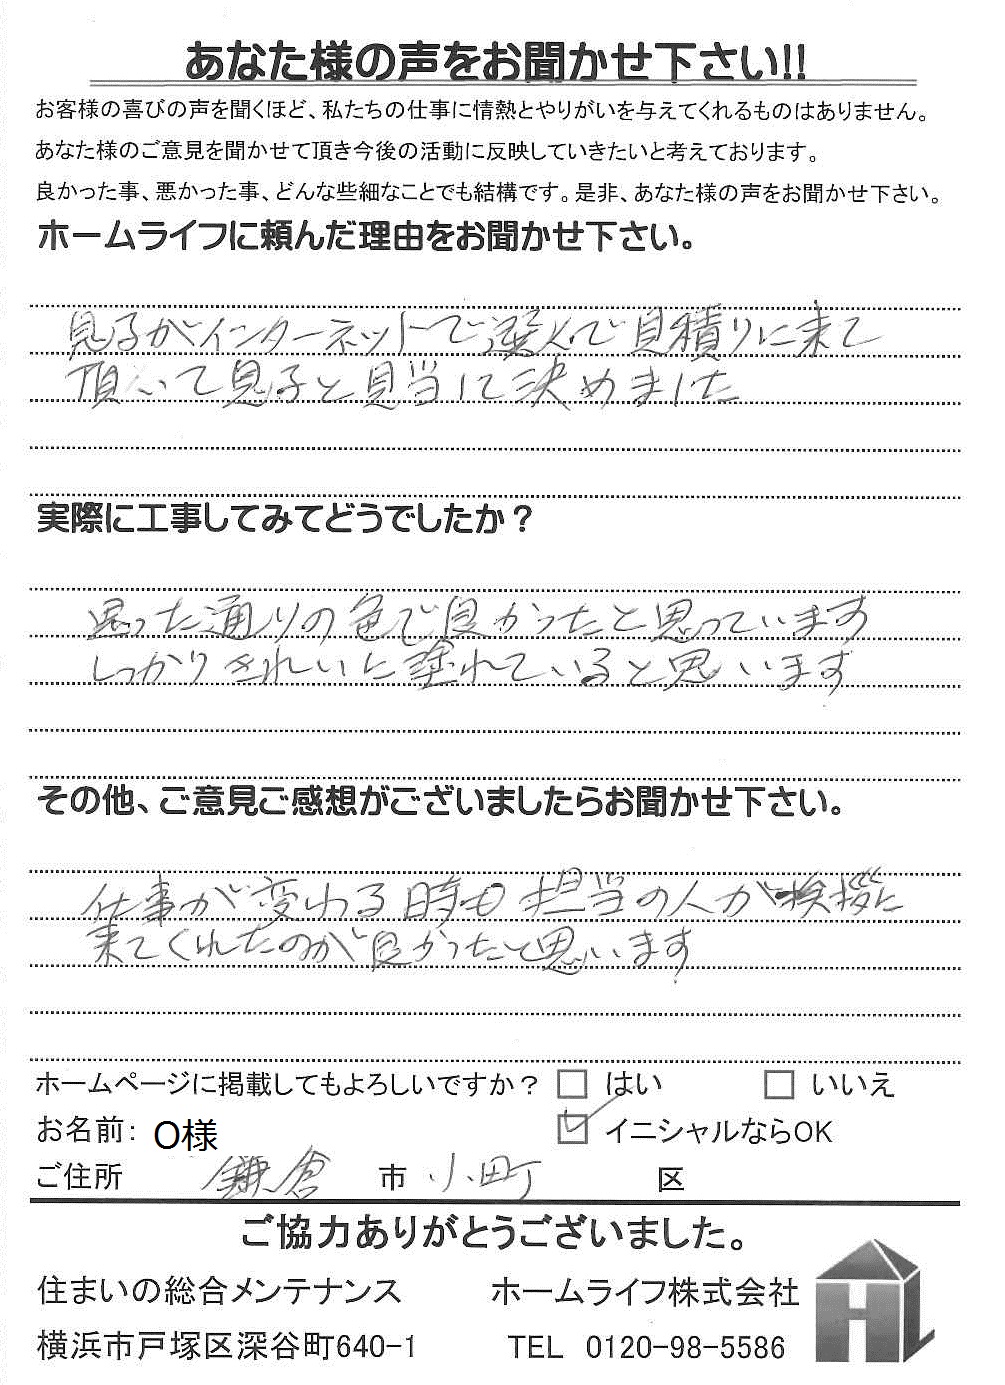 あなた様の声をお聞かせ下さい!!
お客様の喜びの声を聞くほど、私たちの仕事に情熱とやりがいを与えてくれるものはありません。
あなた様のご意見を聞かせて頂き今後の活動に反映していきたいと考えております。
良かった事、悪かった事、どんな些細なことでも結構です。是非、あなた様の声をお聞かせ下さい。
ホームライフに頼んだ理由をお聞かせ下さい。
息子がインターネットで選んで見積りに来て
頂いて息子と見当して決めました
実際に工事してみてどうでしたか？
思った通りの色で良かったと思っています
しっかりきれいに塗れていると思います
その他、ご意見ご感想がございましたらお聞かせ下さい。
仕事が変わる時も担当の人が挨拶に
来てくれたのが良かったと思います
ホームページに掲載してもよろしいですか？ □ はい □ いいえ
お名前： O様 ☑ イニシャルならOK
ご住所 鎌倉 市 小町 区
ご協力ありがとうございました。
住まいの総合メンテナンス ホームライフ株式会社
横浜市戸塚区深谷町640-1 TEL 0120-98-5586
HL